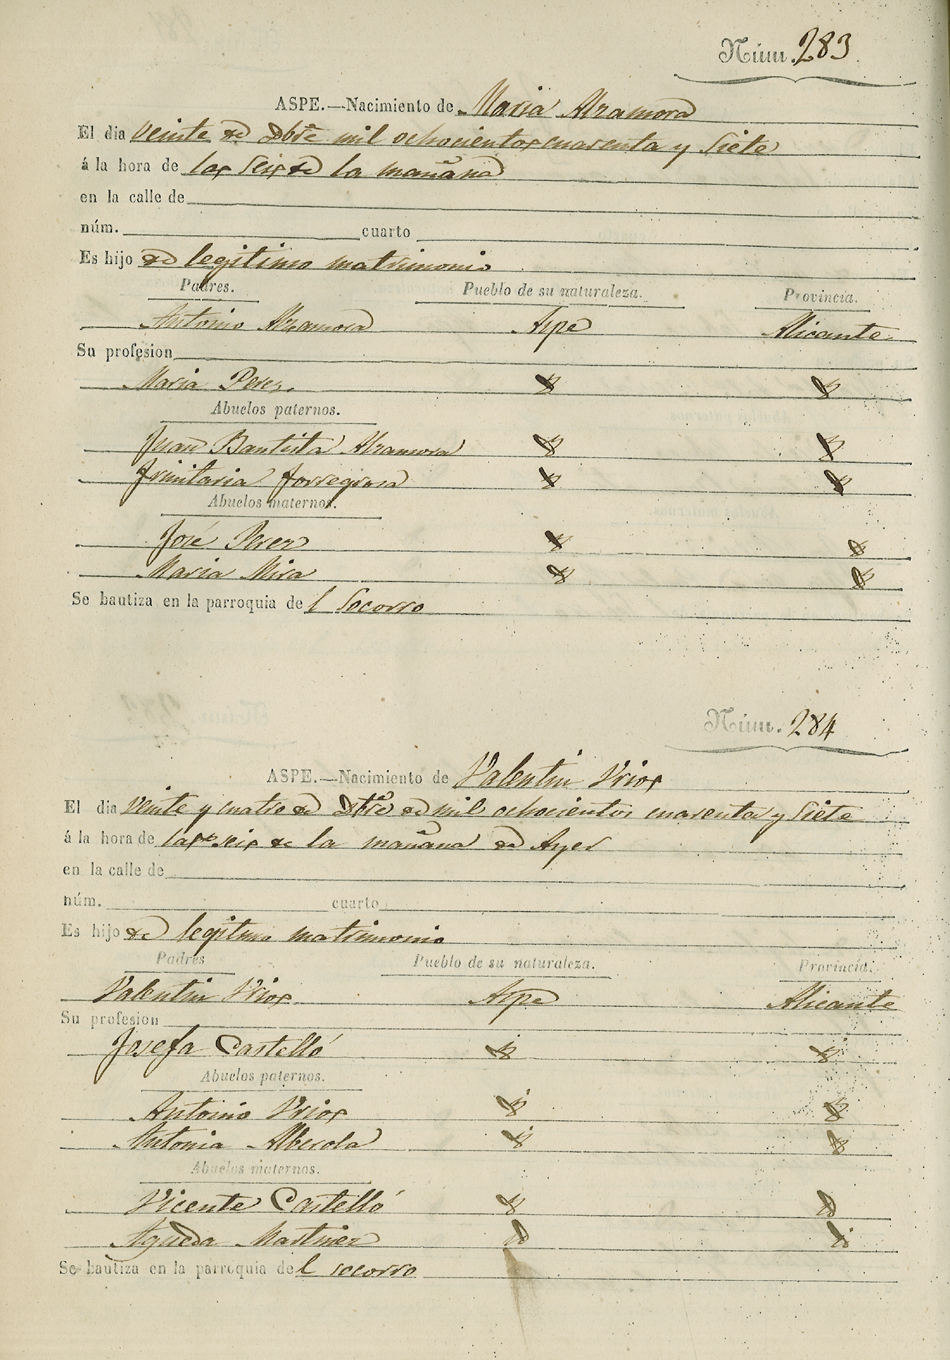 Núm. 283
ASPE.—Nacimiento de Maria Alzamora
El dia veinte de Dbre mil ochocientos cuarenta y siete
á la hora de las seis de la mañana
en la calle de
núm. cuarto
Es hijo de legitimo matrimonio
Padres. Pueblo de su naturaleza. Provincia.
Antonio Alzamora Aspe Alicante
Su profesion
Maria Perez.
Abuelos paternos.
Juan Bautista Alzamora
Trinitaria Torregrosa
Abuelos maternos.
José Perez
Maria Mira
Se bautiza en la parroquia del Socorro
Núm. 284
ASPE.—Nacimiento de Valentin Urios
El dia veinte y cuatro de Dbre de mil ochocientos cuarenta y siete
á la hora de las seis de la mañana de Ayer
en la calle de
núm. cuarto
Es hijo de legitimo matrimonio
Padres Pueblo de su naturaleza. Provincia.
Valentin Urios Aspe Alicante
Su profesion
Josefa Castelló
Abuelos paternos.
Antonio Urios
Antonia Alberola
Abuelos maternos.
Vicente Castelló
Agueda Martinez
Se bautiza en la parroquia del socorro